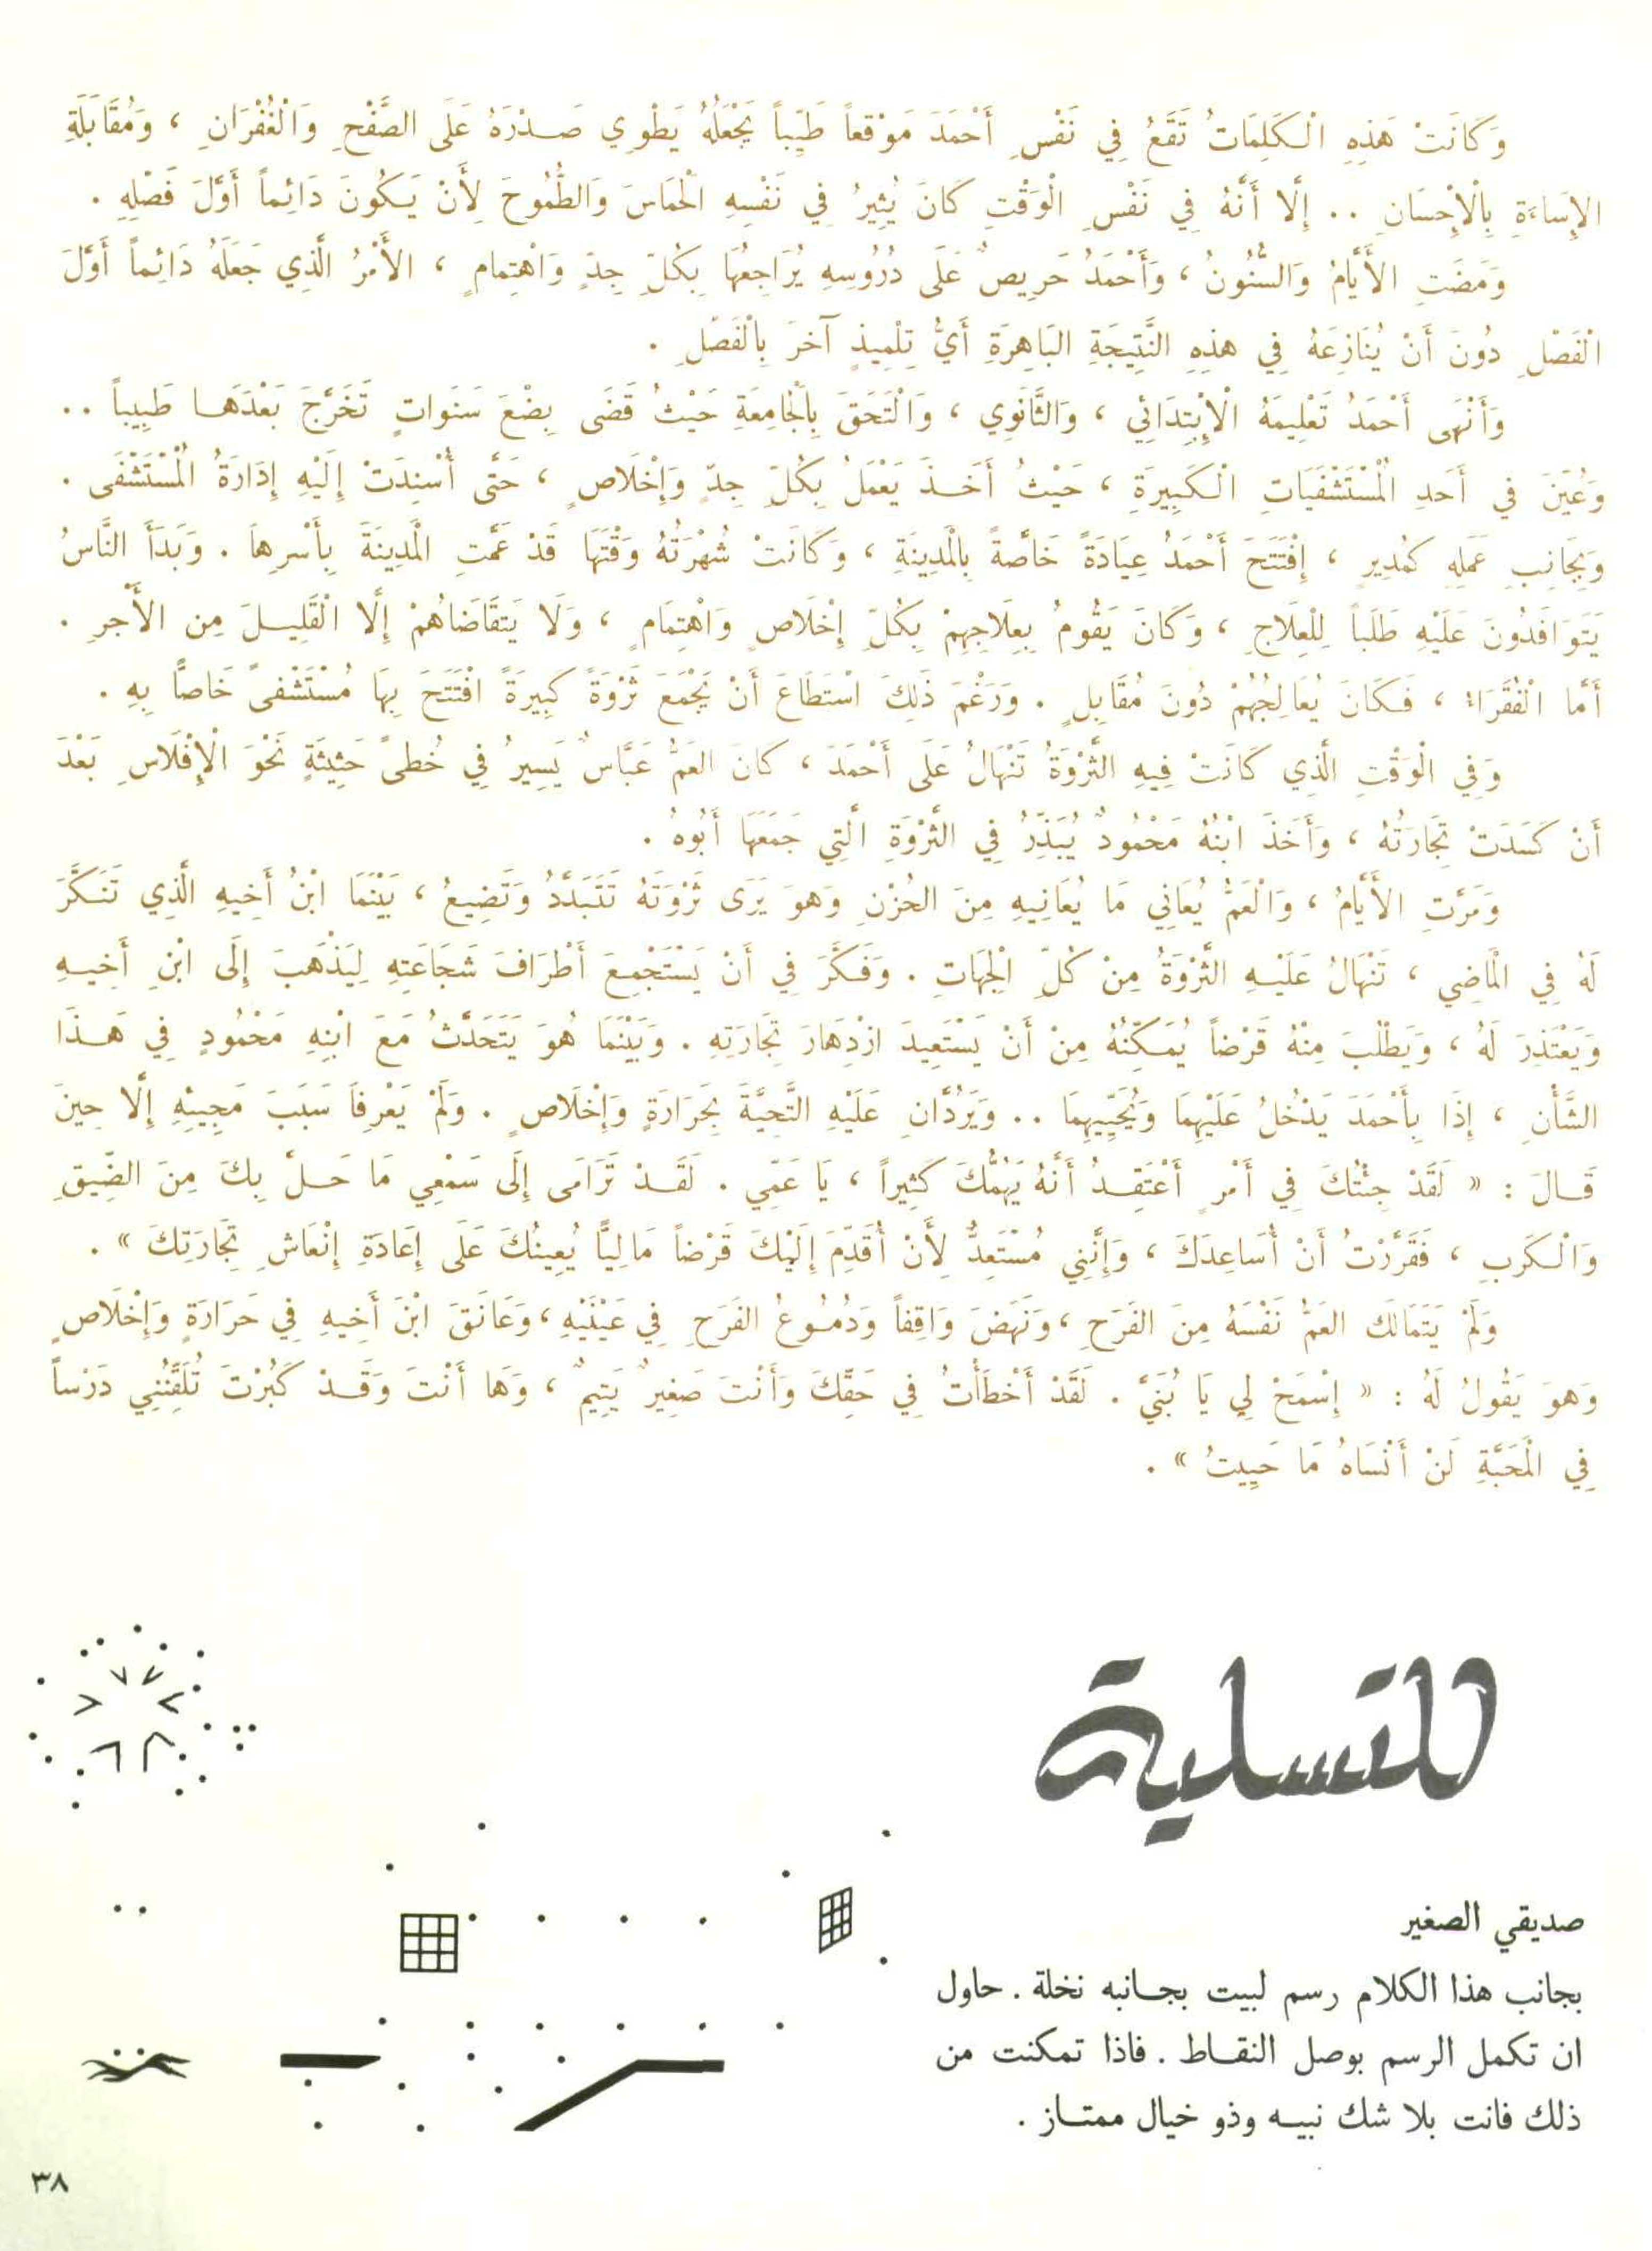 وَكَانَتْ هَذِهِ الْكَلِمَاتُ تَقَعُ فِي نَفْسِ أَحْمَدَ مَوْقِعاً طَيِّباً يَجْعَلُهُ يَطْوِي صَدْرَهُ عَلَى الصَّفْحِ وَالْغُفْرَانِ ، وَمُقَابَلَةِ
الإِسَاءَةِ بِالْإِحْسَانِ .. إِلَّا أَنَّهُ فِي نَفْسِ الْوَقْتِ كَانَ يُثِيرُ فِي نَفْسِهِ الْحَمَاسَ وَالطُّمُوحَ لِأَنْ يَكُونَ دَائِماً أَوَّلَ فَصْلِهِ .
وَمَضَتِ الأَيَّامُ وَالسُّنُونُ ، وَأَحْمَدُ حَرِيصٌ عَلَى دُرُوسِهِ يُرَاجِعُهَا بِكُلِّ جِدٍّ وَاهْتِمامٍ ، الأَمْرُ الَّذِي جَعَلَهُ دَائِماً أَوَّلَ
الْفَصْلِ دُونَ أَنْ يُنَازِعَهُ فِي هذِهِ النَّتِيجَةِ البَاهِرَةِ أَيُّ تِلْمِيذٍ آخرَ بِالْفَصْلِ .
وَأَنْهَى أَحْمَدُ تَعْلِيمَهُ الْإِبْتِدَائِي ، وَالثَّانَوِي ، وَالْتَحَقَ بِالْجَامِعَةِ حَيْثُ قَضَى بِضْعَ سَنَواتٍ تَخَرَّجَ بَعْدَهَا طَبِيباً ..
وَعُيِّنَ في أَحَدِ الْمُسْتَشْفَيَاتِ الْكَبِيرَةِ ، حَيْثُ أَخَذَ يَعْمَلُ بِكُلِّ جِدٍّ وَإِخْلَاصٍ ، حَتَّى أُسْنِدَتْ إِلَيْهِ إِدَارَةُ الْمُسْتَشْفَى .
وَبِجَانِبِ عَمَلِهِ كَمُدِيرٍ ، إِفْتَتَحَ أَحْمَدُ عِيَادَةً خَاصَّةً بِالْمَدِينَةِ ، وَكَانَتْ شُهْرَتُهُ وَقْتَهَا قَدْ عَمَّتِ الْمَدِينَةَ بِأَسْرِهاَ . وَبَدَأَ النَّاسُ
يَتَوَافَدُونَ عَلَيْهِ طَلَباً لِلْعِلَاجِ ، وَكَانَ يَقُومُ بِعِلَاجِهِمْ بِكُلِّ إِخْلَاصٍ وَاهْتِمَامٍ ، وَلَا يَتَقَاضَاهُمْ إِلَّا الْقَلِيلَ مِن الأَجْرِ .
أَمَّا الْفُقَرَاءُ ، فَكَانَ يُعَالِجُهُمْ دُونَ مُقَابِلٍ . وَرَغْمَ ذَلِكَ اسْتَطَاعَ أَنْ يَجْمَعَ ثَرْوَةً كَبِيرَةً افْتَتَحَ بِهَا مُسْتَشْفىً خَاصًّا بِهِ .
وَفِي الْوَقْتِ الَّذِي كَانَتْ فِيهِ الثَّرْوَةُ تَنْهَالُ عَلَى أَحْمَدَ ، كَانَ العَمُّ عَبَّاسٌ يَسِيرُ فِي خُطىً حَثِيثَةٍ نَحْوَ الْإِفْلَاسِ بَعْدَ
أَنْ كَسَدَتْ تِجَارَتُهُ ، وَأَخَذَ ابْنُهُ مَحْمُودٌ يُبَذِّرُ فِي الثَّرْوَةِ الَّتِي جَمَعَهَا أَبُوهُ .
وَمَرَّتِ الأَيَّامُ ، وَالْعَمُّ يُعَانِي مَا يُعَانِيهِ مِنَ الحُزْنِ وَهوَ يَرَى ثَرْوَتَهُ تَتَبَدَّدُ وَتَضِيعُ ، بَيْنَمَا ابْنُ أَخِيهِ الَّذِي تَنَكَّرَ
لَهُ فِي الْمَاضِي ، تَنْهَالُ عَلَيْهِ الثَّرْوَةُ مِنْ كُلِّ الْجِهَاتِ . وَفَكَّرَ فِي أَنْ يَسْتَجْمِعَ أَطْرَافَ شَجَاعَتِهِ لِيَذْهَبَ إِلَى ابْنِ أَخِيهِ
وَيَعْتَذِرَ لَهُ ، وَيَطْلُبَ مِنْهُ قَرْضاً يُمَكِّنُهُ مِنْ أَنْ يَسْتَعِيدَ ازْدِهَارَ تِجَارَتِهِ . وَبَيْنَمَا هُوَ يَتَحَدَّثُ مَعَ ابْنِهِ مَحْمُودٍ فِي هَذَا
الشَّأْنِ ، إِذَا بِأَحْمَدَ يَدْخُلُ عَلَيْهِمَا وَيُحَيِّيهِمَا .. وَيَرُدَّانِ عَلَيْهِ التَّحِيَّةَ بِحَرَارَةٍ وَإِخْلَاصٍ . وَلَمْ يَعْرِفَا سَبَبَ مَجِيئِهِ إِلَّا حِينَ
قَالَ : « لَقَدْ جِئْتُكَ فِي أَمْرٍ أَعْتَقِدُ أَنَّهُ يَهُمُّكَ كَثِيراً ، يَا عَمِّي . لَقَدْ تَرَامَى إِلَى سَمْعِي مَا حَلَّ بِكَ مِنَ الضِّيقِ
وَالْكَرْبِ ، فَقَرَّرْتُ أَنْ أُسَاعِدَكَ ، وَإِنَّنِي مُسْتَعِدُّ لِأَنْ أُقَدِّمَ إِلَيْكَ قَرْضاً مَالِيًّا يُعِينُكَ عَلَى إِعَادَةِ إِنْعَاشِ تِجَارَتِكَ » .
وَلَمْ يَتَمَالَك العَمُّ نَفْسَهُ مِنَ الفَرَحِ ، وَنَهَضَ وَاقِفاً وَدُمُوعُ الفَرَحِ فِي عَيْنَيْهِ ، وَعَانَقَ ابْنَ أَخِيهِ فِي حَرَارَةٍ وَإِخْلَاصٍ
وَهوَ يَقُولُ لَهُ : « إِسْمَحْ لِي يَا بُنَيَّ . لَقَدْ أَخْطَأْتُ فِي حَقِّكَ وَأَنْتَ صَغِيرٌ يَتِيمٌ ، وَهَا أَنْتَ وَقَدْ كَبُرْتَ تُلَقِّنُنِي دَرْساً
فِي الْمَحَبَّةِ لَنْ أَنْسَاهُ مَا حَيِيتُ » .
للتسلية
صديقي الصغير
بجانب هذا الكلام رسم لبيت بجانبه نخلة . حاول
ان تكمل الرسم بوصل النقاط . فاذا تمكنت من
ذلك فانت بلا شك نبيه وذو خيال ممتاز .
٣٨